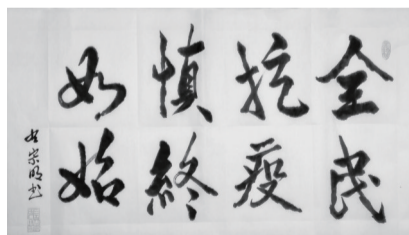 全民
抗疫
慎終
如始